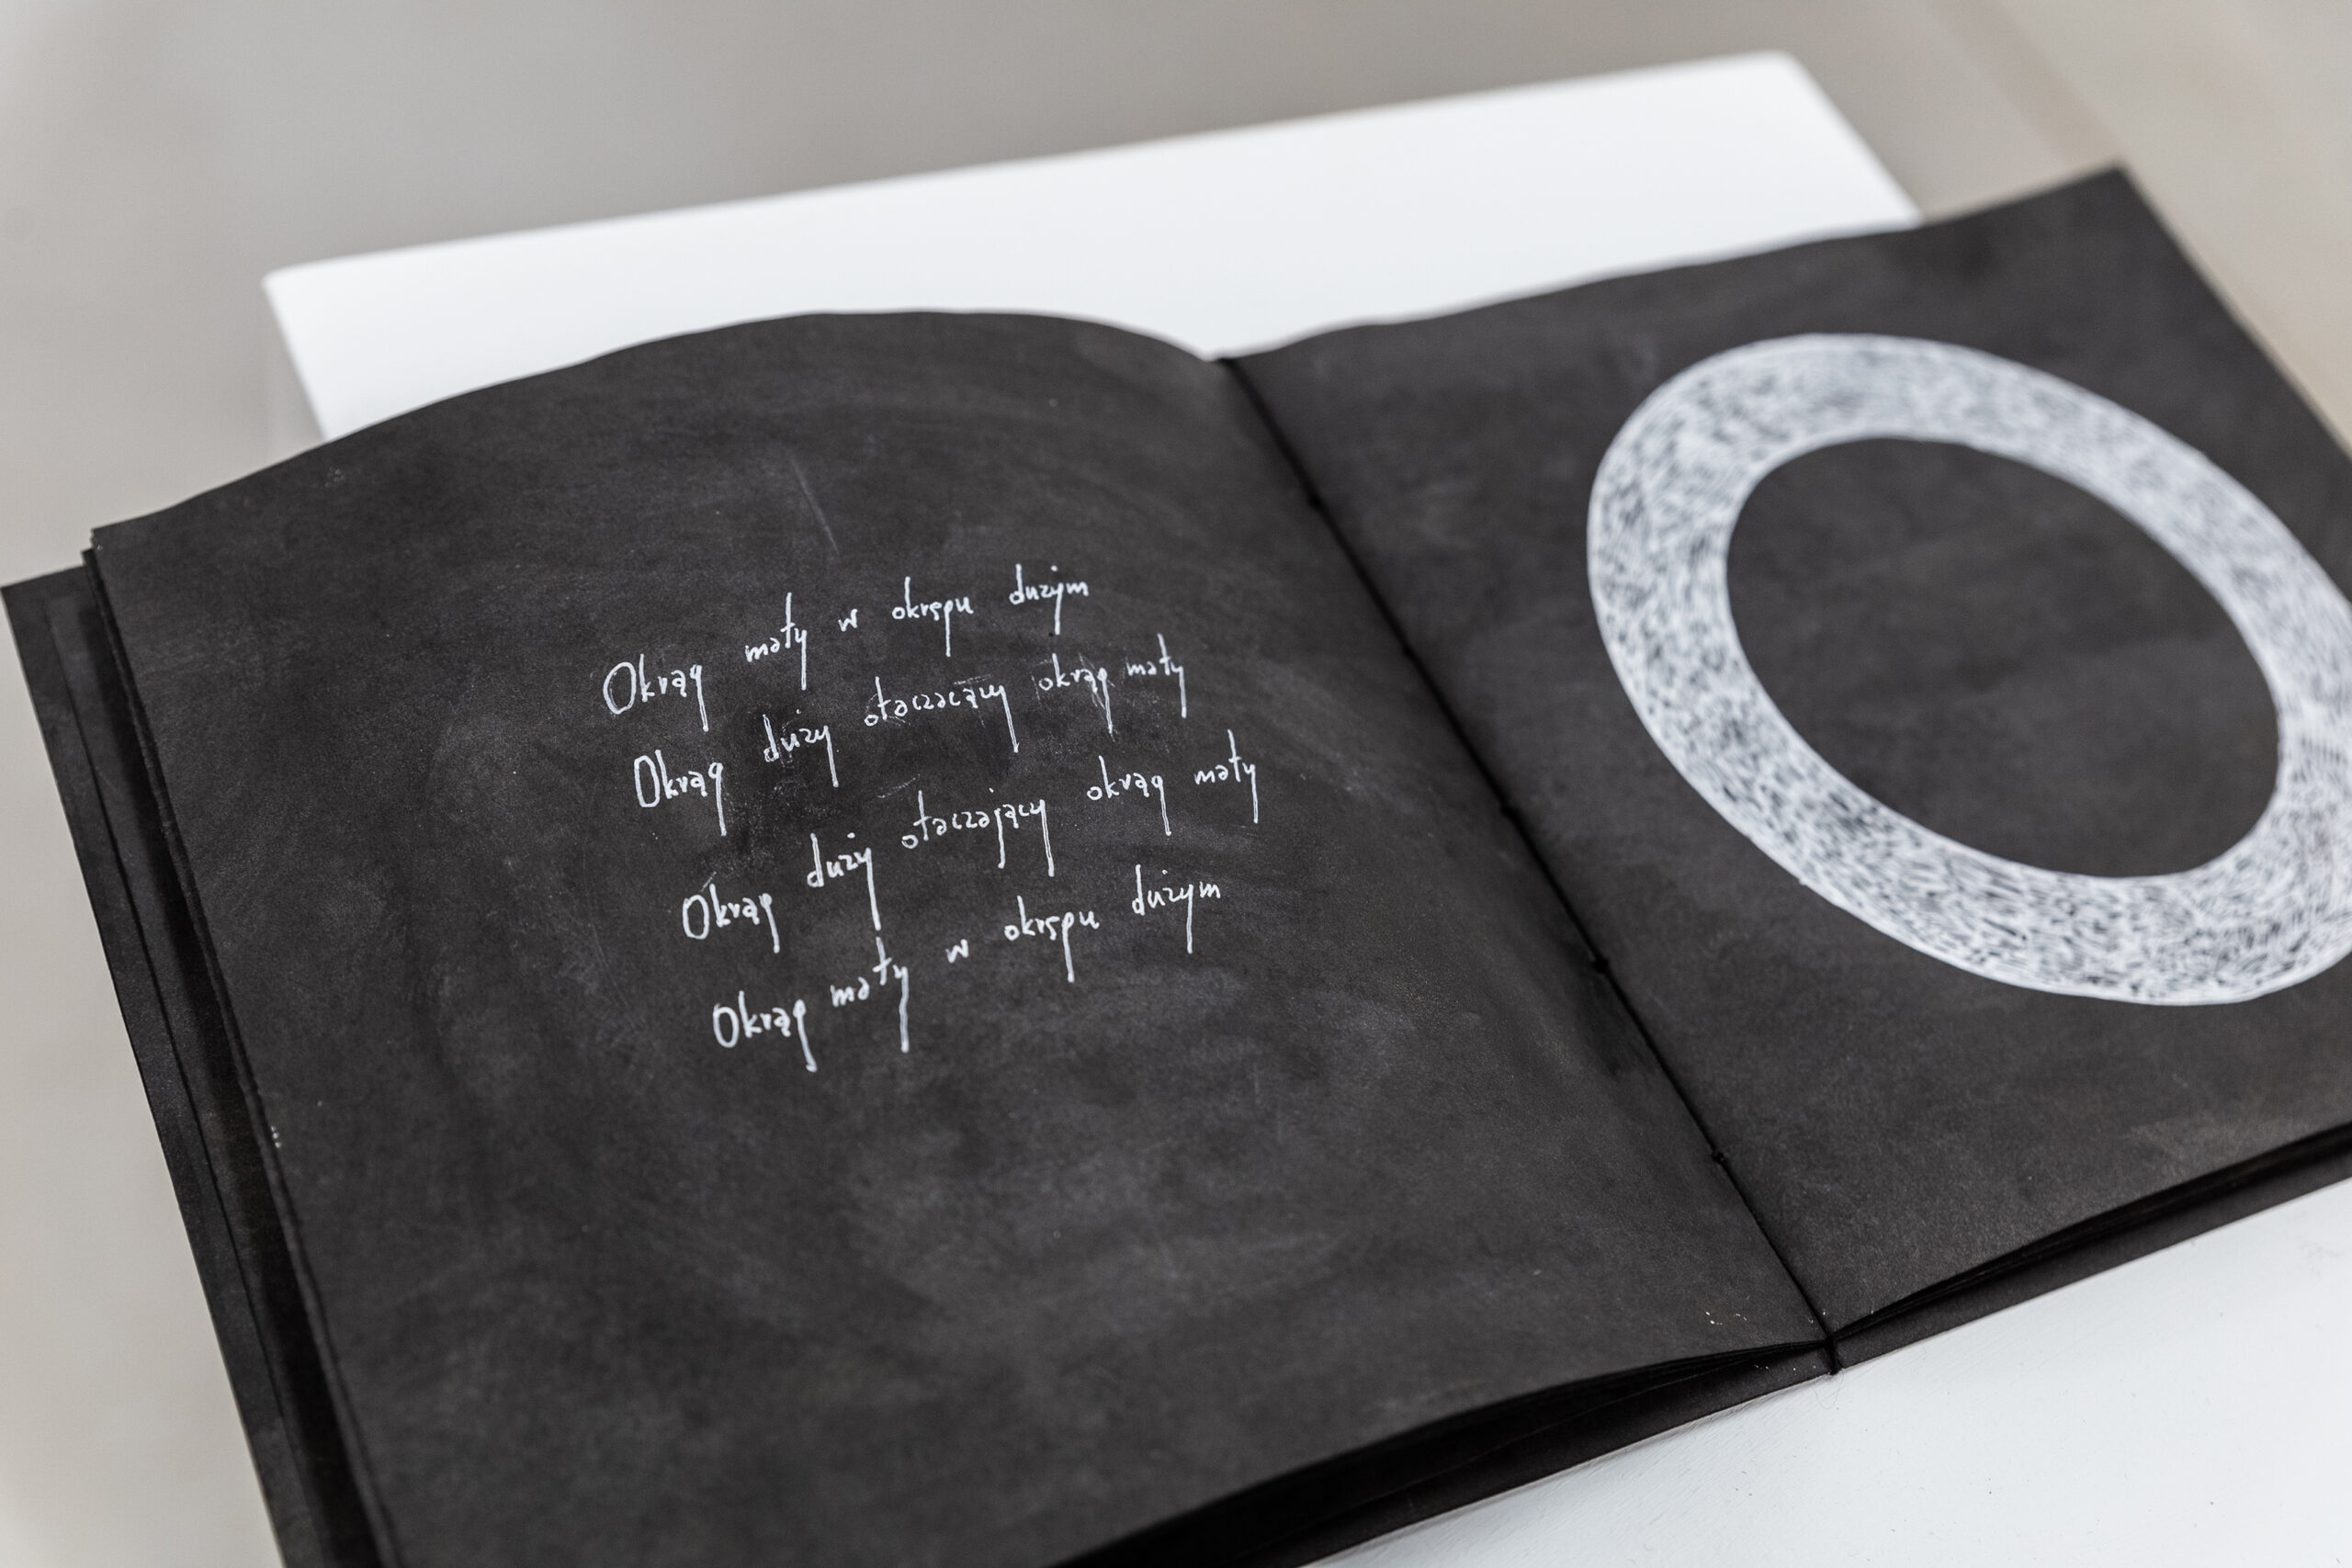 Okrąg mały w okręgu dużym
Okrąg duży otaczacący okrąg mały
Okrąg duży otaczający okrąg mały
Okrąg mały w okręgu dużym